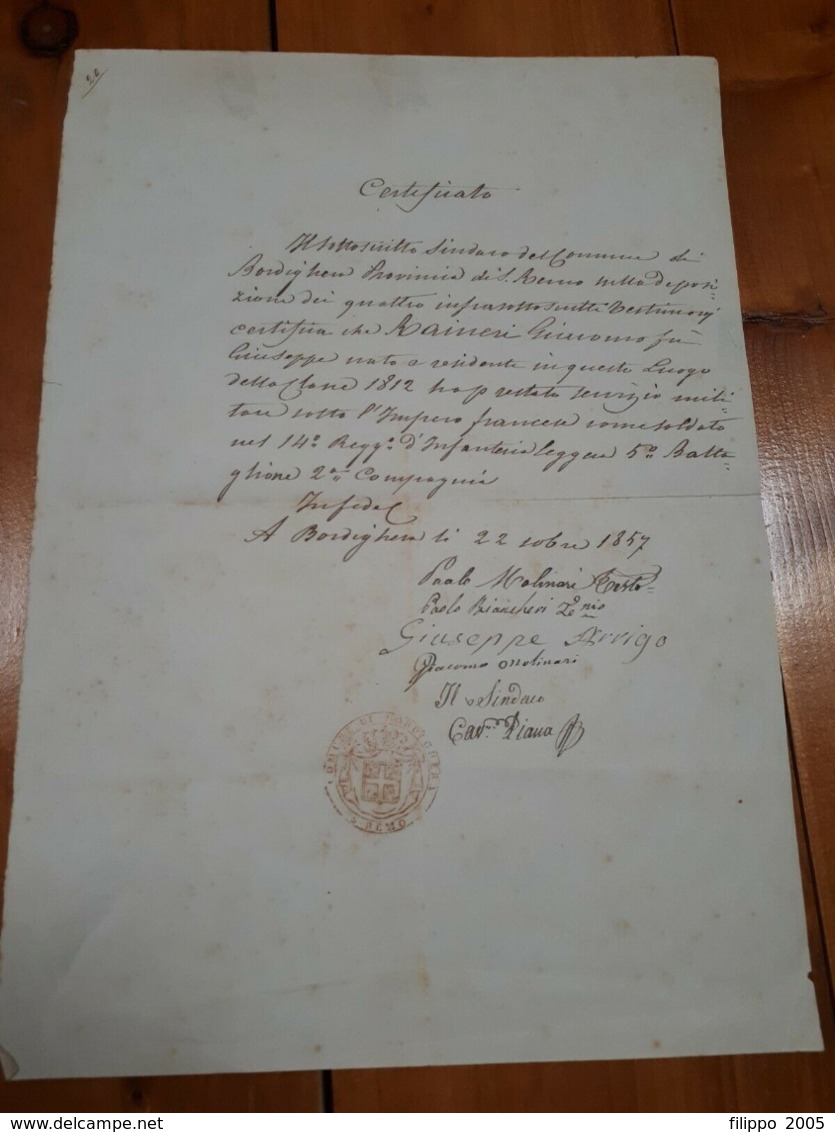 20
Certificato
Il sottoscritto Sindaco del Comune di
Bordighera Provincia di S. Remo sulla deposi-
zione dei quattro infrasottoscritti Testimonj
certifica che Raineri Giacomo fu
Giuseppe nato e residente in questo Luogo
della Classe 1812 ha prestato servizio mili-
tare sotto l'Impero francese come soldato
nel 14.º Regg.º d'Infanteria Leggera 5.º Batta-
glione 2.ª Compagnia
In fede
A Bordighera li 22 8obre 1857
Paolo Molinari Testo
Paolo Biancheri
Giuseppe Arrigo
Giacomo Molinari
Il Sindaco
Cav.re Piana
COMUNE DI BORDIGHERA
S. REMO
delcampe.net
filippo 2005